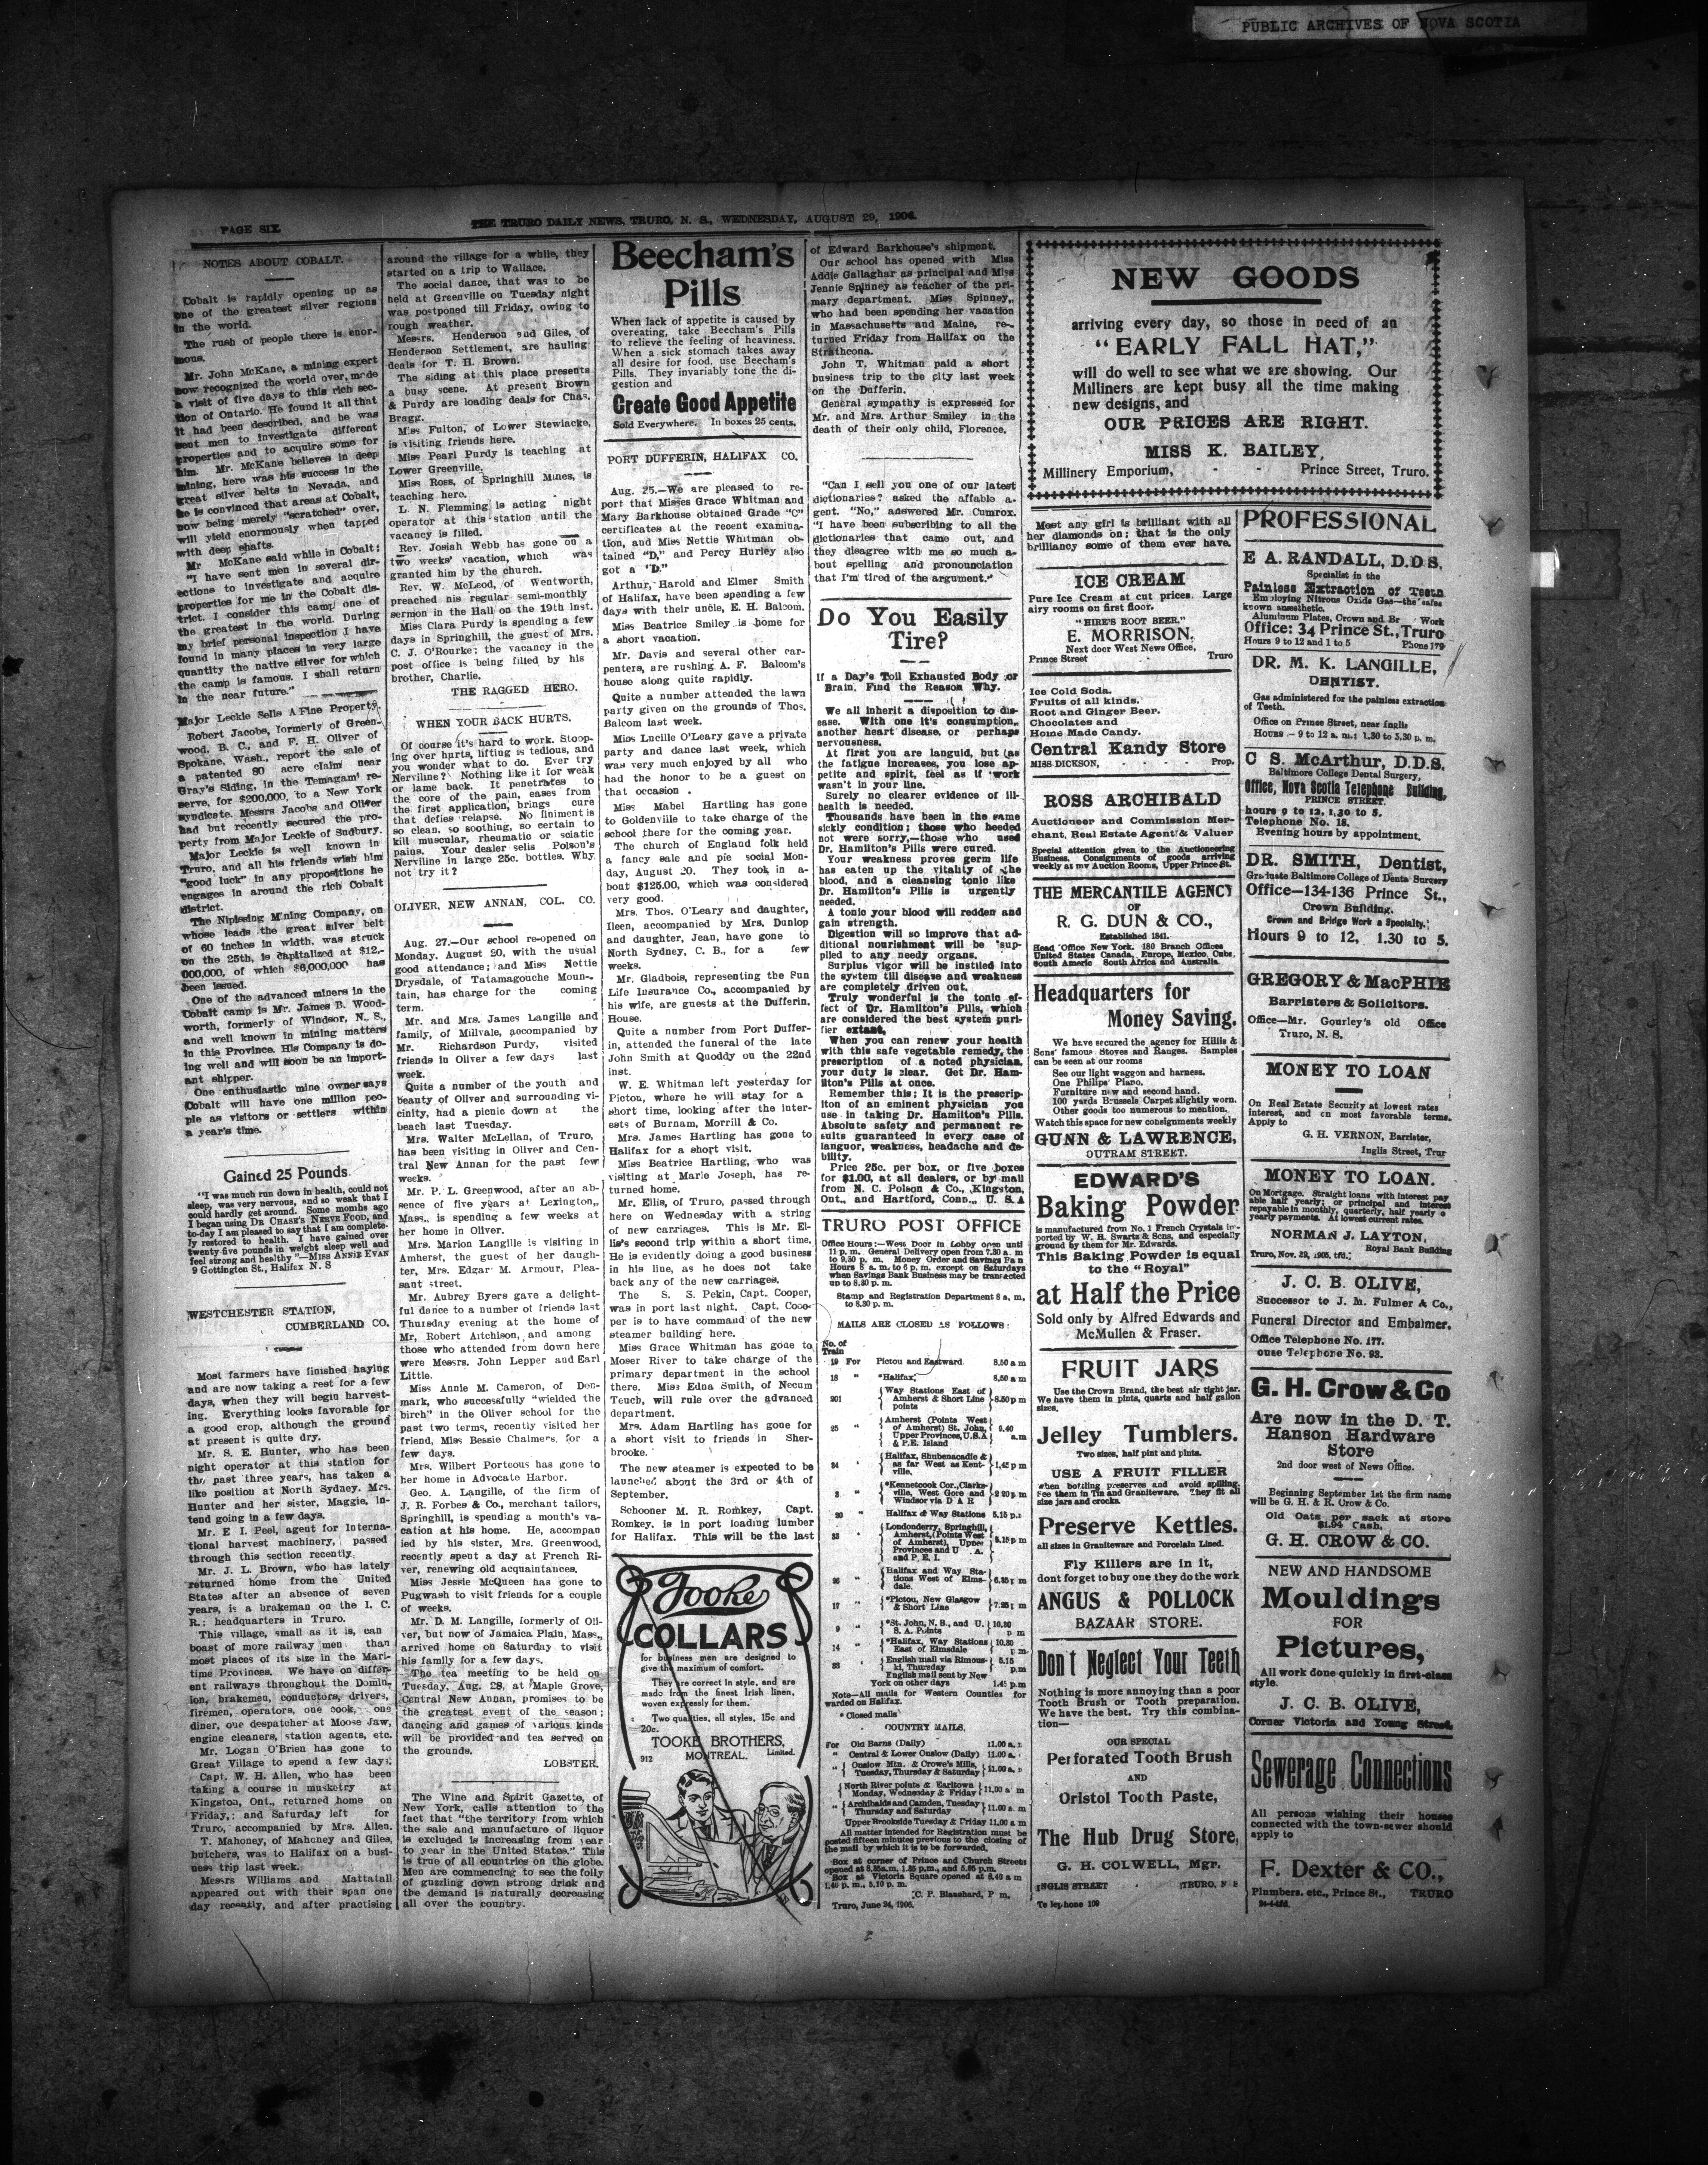 PUBLIC ARCHIVES OF NOVA SCOTIA
PAGE SIX.
THE TRURO DAILY NEWS, TRURO, N. S., WEDNESDAY, AUGUST 29, 1906.
NOTES ABOUT COBALT.
Cobalt is rapidly opening up as
one of the greatest silver regions
in the world.
The rush of people there is enor-
mous.
Mr. John McKane, a mining expert
now recognized the world over, made
a visit of five days to this rich sec-
tion of Ontario. He found it all that
it had been described, and he was
sent men to investigate different
properties and to acquire some for
him. Mr. McKane believes in deep
mining, here was his success in the
great silver belts in Nevada, and
he is convinced that areas at Cobalt,
now being merely "scratched" over,
will yield enormously when tapped
with deep shafts.
Mr McKane said while in Cobalt:
"I have sent men in several dir-
ections to investigate and acquire
properties for me in the Cobalt dis-
trict. I consider this camp one of
the greatest in the world. During
my brief personal inspection I have
found in many places in very large
quantity the native silver for which
the camp is famous. I shall return
in the near future."
Major Leckie Sells A Fine Property.
Robert Jacobs, formerly of Green-
wood, B. C., and F. H. Oliver of
Spokane, Wash., report the sale of
a patented 80 acre claim near
Gray's Siding, in the Temagami re-
serve, for $200,000, to a New York
syndicate. Messrs Jacobs and Oliver
had but recently secured the pro-
perty from Major Leckie of Sudbury.
Major Leckie is well known in
Truro, and all his friends wish him
"good luck" in any propositions he
engages in around the rich Cobalt
district.
The Nipissing Mining Company, on
whose leads the great silver belt
of 60 inches in width, was struck
on the 25th, is capitalized at $12,-
000,000, of which $6,000,000 has
been issued.
One of the advanced miners in the
Cobalt camp is Mr. James B. Wood-
worth, formerly of Windsor, N. S.,
and well known in mining matters
in this Province. His Company is do-
ing well and will soon be an import-
ant shipper.
One enthusiastic mine owner says
Cobalt will have one million peo-
ple as visitors or settlers within
a year's time.
Gained 25 Pounds
"I was much run down in health, could not
sleep, was very nervous, and so weak that I
could hardly get around. Some months ago
I began using DR CHASE'S NERVE FOOD, and
to-day I am pleased to say that I am complete-
ly restored to health. I have gained over
twenty-five pounds in weight sleep well and
feel strong and healthy"—MISS ANNIE EVAN
9 Gottington St., Halifax N. S
WESTCHESTER STATION,
CUMBERLAND CO.
Most farmers have finished haying
and are now taking a rest for a few
days, when they will begin harvest-
ing. Everything looks favorable for
a good crop, although the ground
at present is quite dry.
Mr. S. E. Hunter, who has been
night operator at this station for
the past three years, has taken a
like position at North Sydney. Mrs.
Hunter and her sister, Maggie, in-
tend going in a few days.
Mr. E I. Peel, agent for Interna-
tional harvest machinery, passed
through this section recently.
Mr. J. L. Brown, who has lately
returned home from the United
States after an absence of seven
years, is a brakeman on the I. C.
R.; headquarters in Truro.
This village, small as it is, can
boast of more railway men than
most places of its size in the Mari-
time Provinces. We have on differ-
ent railways throughout the Domin-
ion, brakemen, conductors, drivers,
firemen, operators, one cook, one
diner, one despatcher at Moose Jaw,
engine cleaners, station agents, etc.
Mr. Logan O'Brien has gone to
Great Village to spend a few days.
Capt. W. H. Allen, who has been
taking a course in musketry at
Kingston, Ont., returned home on
Friday,; and Saturday left for
Truro, accompanied by Mrs. Allen.
T. Mahoney, of Mahoney and Giles,
butchers, was to Halifax on a busi-
ness trip last week.
Messrs Williams and Mattatall
appeared out with their span one
day recently, and after practising
around the village for a while, they
started on a trip to Wallace.
The social dance, that was to be
held at Greenville on Tuesday night
was postponed till Friday, owing to
rough weather.
Messrs. Henderson and Giles, of
Henderson Settlement, are hauling
deals for T. H. Brown.
The siding at this place presents
a busy scene. At present Brown
& Purdy are loading deals for Chas.
Bragg.
Miss Fulton, of Lower Stewiacke,
is visiting friends here.
Miss Pearl Purdy is teaching at
Lower Greenville.
Miss Ross, of Springhill Mines, is
teaching here.
L. N. Flemming is acting night
operator at this station until the
vacancy is filled.
Rev. Josiah Webb has gone on a
two weeks' vacation, which was
granted him by the church.
Rev. W. McLeod, of Wentworth,
preached his regular semi-monthly
sermon in the Hall on the 19th inst.
Miss Clara Purdy is spending a few
days in Springhill, the guest of Mrs.
C. J. O'Rourke; the vacancy in the
post office is being filled by his
brother, Charlie.
THE RAGGED HERO.
WHEN YOUR BACK HURTS.
Of course it's hard to work. Stoop-
ing over hurts, lifting is tedious, and
you wonder what to do. Ever try
Nerviline? Nothing like it for weak
or lame back. It penetrates to
the core of the pain, eases from
the first application, brings cure
that defies relapse. No liniment is
so clean, so soothing, so certain to
kill muscular, rheumatic or sciatic
pains. Your dealer sells Polson's
Nerviline in large 25c. bottles. Why
not try it?
OLIVER, NEW ANNAN, COL. CO.
Aug. 27.—Our school re-opened on
Monday, August 20, with the usual
good attendance; and Miss Nettie
Drysdale, of Tatamagouche Moun-
tain, has charge for the coming
term.
Mr. and Mrs. James Langille and
family, of Millvale, accompanied by
Mr. Richardson Purdy, visited
friends in Oliver a few days last
week.
Quite a number of the youth and
beauty of Oliver and surrounding vi-
cinity, had a picnic down at the
beach last Tuesday.
Mrs. Walter McLellan, of Truro,
has been visiting in Oliver and Cen-
tral New Annan for the past few
weeks.
Mr. P. L. Greenwood, after an ab-
sence of five years at Lexington,
Mass., is spending a few weeks at
her home in Oliver.
Mrs. Marion Langille is visiting in
Amherst, the guest of her daugh-
ter, Mrs. Edgar M. Armour, Plea-
sant street.
Mr. Aubrey Byers gave a delight-
ful dance to a number of friends last
Thursday evening at the home of
Mr. Robert Aitchison, and among
those who attended from down here
were Messrs. John Lepper and Earl
Little.
Miss Annie M. Cameron, of Den-
mark, who successfully "wielded the
birch" in the Oliver school for the
past two terms, recently visited her
friend, Miss Bessie Chalmers, for a
few days.
Mrs. Wilbert Porteous has gone to
her home in Advocate Harbor.
Geo. A. Langille, of the firm of
J. R. Forbes & Co., merchant tailors,
Springhill, is spending a month's va-
cation at his home. He, accompan
ied by his sister, Mrs. Greenwood,
recently spent a day at French Ri-
ver, renewing old acquaintances.
Miss Jessie McQueen has gone to
Pugwash to visit friends for a couple
of weeks.
Mr. D. M. Langille, formerly of Oli-
ver, but now of Jamaica Plain, Mass.,
arrived home on Saturday to visit
his family for a few days.
The tea meeting to be held on
Tuesday, Aug. 28, at Maple Grove,
Central New Annan, promises to be
the greatest event of the season;
dancing and games of various kinds
will be provided and tea served on
the grounds.
LOBSTER.
The Wine and Spirit Gazette, of
New York, calls attention to the
fact that "the territory from which
the sale and manufacture of liquor
is excluded is increasing from year
to year in the United States." This
is true of all countries on the globe.
Men are commencing to see the folly
of guzzling down strong drink and
the demand is naturally decreasing
all over the country.
Beecham's
Pills
When lack of appetite is caused by
overeating, take Beecham's Pills
to relieve the feeling of heaviness.
When a sick stomach takes away
all desire for food, use Beecham's
Pills. They invariably tone the di-
gestion and
Create Good Appetite
Sold Everywhere. In boxes 25 cents.
PORT DUFFERIN, HALIFAX CO.
Aug. 25.—We are pleased to re-
port that Misses Grace Whitman and
Mary Barkhouse obtained Grade "C"
certificates at the recent examina-
tion, and Miss Nettie Whitman ob-
tained "D," and Percy Hurley also
got a "D."
Arthur, Harold and Elmer Smith
of Halifax, have been spending a few
days with their uncle, E. H. Balcom.
Miss Beatrice Smiley is home for
a short vacation.
Mr. Davis and several other car-
penters, are rushing A. F. Balcom's
house along quite rapidly.
Quite a number attended the lawn
party given on the grounds of Thos.
Balcom last week.
Miss Lucille O'Leary gave a private
party and dance last week, which
was very much enjoyed by all who
had the honor to be a guest on
that occasion .
Miss Mabel Hartling has gone
to Goldenville to take charge of the
school there for the coming year.
The church of England folk held
a fancy sale and pie social Mon-
day, August 20. They took in a-
bout $125.00, which was considered
very good.
Mrs. Thos. O'Leary and daughter,
Ileen, accompanied by Mrs. Dunlop
and daughter, Jean, have gone to
North Sydney, C. B., for a few
weeks.
Mr. Gladbois, representing the Sun
Life Insurance Co., accompanied by
his wife, are guests at the Dufferin.
House.
Quite a number from Port Duffer-
in, attended the funeral of the late
John Smith at Quoddy on the 22nd
inst.
W. E. Whitman left yesterday for
Pictou, where he will stay for a
short time, looking after the inter-
ests of Burnam, Morrill & Co.
Mrs. James Hartling has gone to
Halifax for a short visit.
Miss Beatrice Hartling, who was
visiting at Marie Joseph, has re-
turned home.
Mr. Ellis, of Truro, passed through
here on Wednesday with a string
of new carriages. This is Mr. El-
lis's second trip within a short time.
He is evidently doing a good business
in his line, as he does not take
back any of the new carriages.
The S. S. Pekin, Capt. Cooper,
was in port last night. Capt. Cooo-
per is to have command of the new
steamer building here.
Miss Grace Whitman has gone to
Moser River to take charge of the
primary department in the school
there. Miss Edna Smith, of Necum
Teuch, will rule over the advanced
department.
Mrs. Adam Hartling has gone for
a short visit to friends in Sher-
brooke.
The new steamer is expected to be
launched about the 3rd or 4th of
September.
Schooner M. R. Romkey, Capt.
Romkey, is in port loading lumber
for Halifax. This will be the last
Tooke
COLLARS
for business men are designed to
give the maximum of comfort.
They are correct in style, and are
made from the finest Irish linen,
woven expressly for them.
Two qualities, all styles, 15c and
20c.
TOOKE BROTHERS,
Limited.
912 MONTREAL.
of Edward Barkhouse's shipment.
Our school has opened with Miss
Addie Gallaghar as principal and Miss
Jennie Spinney as teacher of the pri-
mary department. Miss Spinney,
who had been spending her vacation
in Massachusetts and Maine, re-
turned Friday from Halifax on the
Strathcona.
John T. Whitman paid a short
business trip to the city last week
on the Dufferin.
General sympathy is expressed for
Mr. and Mrs. Arthur Smiley in the
death of their only child, Florence.
"Can I sell you one of our latest
dictionaries? asked the affable a-
gent. "No," answered Mr. Cumrox.
"I have been subscribing to all the
dictionaries that came out, and
they disagree with me so much a-
bout spelling and pronounciation
that I'm tired of the argument."
Do You Easily
Tire?
If a Day's Toil Exhausted Body or
Brain, Find the Reason Why.
We all inherit a disposition to dis-
ease. With one it's consumption,
another heart disease, or perhaps
nervousness.
At first you are languid, but as
the fatigue increases, you lose ap-
petite and spirit, feel as if work
wasn't in your line.
Surely no clearer evidence of ill-
health is needed.
Thousands have been in the same
sickly condition; those who heeded
not were sorry,—those who used
Dr. Hamilton's Pills were cured.
Your weakness proves germ life
has eaten up the vitality of the
blood, and a cleansing tonic like
Dr. Hamilton's Pills is urgently
needed.
A tonic your blood will redden and
gain strength.
Digestion will so improve that ad-
ditional nourishment will be sup-
plied to any needy organs.
Surplus vigor will be instiled into
the system till disease and weakness
are completely driven out.
Truly wonderful is the tonic ef-
fect of Dr. Hamilton's Pills, which
are considered the best system puri-
fier extant.
When you can renew your health
with this safe vegetable remedy, the
prescription of a noted physician,
your duty is clear. Get Dr. Ham-
ilton's Pills at once.
Remember this; It is the prescrip-
iton of an eminent physician you
use in taking Dr. Hamilton's Pills.
Absolute safety and permanent re-
sults guaranteed in every case of
languor, weakness, headache and de-
bility.
Price 25c. per box, or five boxes
for $1.00, at all dealers, or by mail
from N. C. Polson & Co., Kingston,
Ont., and Hartford, Conn., U. S. A
TRURO POST OFFICE
Office Hours:—West Door in Lobby open until
11 p. m. General Delivery open from 7.30 a. m
to 9.30 p. m. Money Order and Savings
Hours 8 a. m. to 6 p. m. except on Saturdays
when Savings Bank Business may be transacted
up to 8.30 p. m.
Stamp and Registration Department 8 a. m.
to 8.30 p. m.
MAILS ARE CLOSED AS FOLLOWS:
No. of
Train
19 For Pictou and Eastward 8.50 a m
18 " *Halifax, 8.50 a m
201 Way Stations East of Amherst & Short Line points 8.50 p m
25 " Amherst (Points West of Amherst) St. John, Upper Provinces, U.S.A & P.E. Island 9.40 a.m
24 Halifax, Shubenacadie & as far West as Kent- ville, 1.45 p m
3 " *Kennetcook Cor., Clarks- ville, West Gore and Windsor via D A R 2 20 p m
20 " Halifax & Way Stations 5.15 p.m
33 Londonderry, Springhill, Amherst, (Points West of Amherst), Upper Provinces and U . A. and P. E. I. 5.15 p m
26 " Halifax and Way Sta- tions West of Elms- dale. 6.35 p m
17 " *Pictou, New Glasgow & Short Line 7.25 p m
9 " *St. John, N. B., and U. S. A. Points 10.30 p m
14 " *Halifax, Way Stations East of Elmsdale 10.30 p m
33 English mail via Rimous- ki, Thursday 5.15 p.m
English mail sent by New
York on other days 1.45 p.m
Note—All mails for Western Counties for
warded on Halifax.
* Closed mails
COUNTRY MAILS.
For Old Barns (Daily) 11.00 a. m
" Central & Lower Onslow (Daily) 11.00 a.
" Onslow Mtn. & Crowe's Mills, Tuesday, Thursday & Saturday 11.00 a.
North River points & Earltown Monday, Wednesday & Friday 11.00 a m
" Archibalds and Camden, Tuesday Thursday and Saturday 11.00 a. m
Upper Brookside Tuesday & Friday 11.00 a m
All matter intended for Registration must be
posted fifteen minutes previous to the closing of
the mail by which it is to be forwarded.
Box at corner of Prince and Church Streets
opened at 8.35a.m. 1.35 p.m., and 5.05 p.m.
Box at Victoria Square opened at 8.40 a m
1.40 p. m., 5.10 p. m.
C. P. Blanchard, P m.
Truro, June 24, 1906.
NEW GOODS
arriving every day, so those in need of an
"EARLY FALL HAT,"
will do well to see what we are showing. Our
Milliners are kept busy all the time making
new designs, and
OUR PRICES ARE RIGHT.
MISS K. BAILEY,
Millinery Emporium, - - Prince Street, Truro.
Most any girl is brilliant with all
her diamonds on; that is the only
brilliancy some of them ever have.
ICE CREAM
Pure Ice Cream at cut prices. Large
airy rooms on first floor.
"HIRE'S ROOT BEER."
E. MORRISON,
Next door West News Office,
Prince Street - - Truro
Ice Cold Soda.
Fruits of all kinds.
Root and Ginger Beer.
Chocolates and
Home Made Candy.
Central Kandy Store
MISS DICKSON, - - - - Prop.
ROSS ARCHIBALD
Auctioneer and Commission Mer-
chant, Real Estate Agent & Valuer
Special attention given to the Auctioneering
Business. Consignments of goods arriving
weekly at my Auction Rooms, Upper Prince St.
THE MERCANTILE AGENCY
OF
R. G. DUN & CO.,
Established 1841.
Head Office New York. 180 Branch Offices
United States Canada, Europe, Mexico, Cuba,
South Americ South Africa and Australia.
Headquarters for
Money Saving.
We have secured the agency for Hillis &
Sons' famous Stoves and Ranges. Samples
can be seen at our rooms
See our light waggon and harness.
One Philips' Piano.
Furniture new and second hand.
100 yards Brussels Carpet slightly worn.
Other goods too numerous to mention.
Watch this space for new consignments weekly
GUNN & LAWRENCE,
OUTRAM STREET.
EDWARD'S
Baking Powder
is manufactured from No. 1 French Crystals im-
ported by W. H. Swartz & Sons, and especially
ground by them for Mr. Edwards.
This Baking Powder is equal
to the "Royal"
at Half the Price
Sold only by Alfred Edwards and
McMullen & Fraser.
FRUIT JARS
Use the Crown Brand, the best air tight jar.
We have them in pints, quarts and half gallon
sizes.
Jelley Tumblers.
Two sizes, half pint and pints.
USE A FRUIT FILLER
when bottling preserves and avoid spilling.
See them in Tin and Graniteware. They fit all
size jars and crocks.
Preserve Kettles.
all sizes in Graniteware and Porcelain Lined.
Fly Killers are in it,
dont forget to buy one they do the work
ANGUS & POLLOCK
BAZAAR STORE.
Don't Neglect Your Teeth
Nothing is more annoying than a poor
Tooth Brush or Tooth preparation.
We have the best. Try this combina-
tion—
OUR SPECIAL
Perforated Tooth Brush
AND
Oristol Tooth Paste,
The Hub Drug Store,
G. H. COLWELL, Mgr.
INGLIS STREET - TRURO, N S
Telephone 109
PROFESSIONAL
E A. RANDALL, D.D.S.
Specialist in the
Painless Extraction of Teeth
Employing Nitrous Oxide Gas—the safes
known anæsthetic.
Aluminum Plates, Crown and Br Work
Office: 34 Prince St., Truro
Hours 9 to 12 and 1 to 5 Phone 179
DR. M. K. LANGILLE,
DENTIST.
Gas administered for the painless extraction
of Teeth.
Office on Prince Street, near Inglis
HOURS :— 9 to 12 a. m.: 1.30 to 5.30 p. m.
C S. McARTHUR, D.D.S.
Baltimore College Dental Surgery,
Office, Nova Scotia Telephone Building,
PRINCE STREET.
hours 9 to 12, 1.30 to 5.
Telephone No. 18.
Evening hours by appointment.
DR. SMITH, Dentist,
Graduate Baltimore College of Denta Surgery
Office—134-136 Prince St.,
Crown Building.
Crown and Bridge Work a Specialty.
Hours 9 to 12, 1.30 to 5.
GREGORY & MacPHIE
Barristers & Solicitors.
Office—Mr. Gourley's old Office
Truro, N. S.
MONEY TO LOAN
On Real Estate Security at lowest rates
interest, and on most favorable terms.
Apply to
G. H. VERNON, Barrister,
Inglis Street, Trur
MONEY TO LOAN.
On Mortgage. Straight loans with interest pay
able half yearly; or principal and interest
repayable in monthly, quarterly, half yearly o
yearly payments. At lowest current rates.
NORMAN J. LAYTON,
Royal Bank Building
Truro, Nov. 29, 1905. tfd.
J. C. B. OLIVE,
Successor to J. M. Fulmer & Co.,
Funeral Director and Embalmer.
Office Telephone No. 177.
ouse Telephone No. 93.
G. H. Crow & Co
Are now in the D. T.
Hanson Hardware
Store
2nd door west of News Office.
Beginning September 1st the firm name
will be G. H. & R. Crow & Co.
Old Oats per sack at store
$1.94 Cash,
G. H. CROW & CO.
NEW AND HANDSOME
Mouldings
FOR
Pictures,
All work done quickly in first-class
style.
J. C. B. OLIVE,
Corner Victoria and Young Street.
Sewerage Connections
All persons wishing their houses
connected with the town-sewer should
apply to
F. Dexter & CO.,
Plumbers, etc., Prince St., TRURO
24-4-tfd.